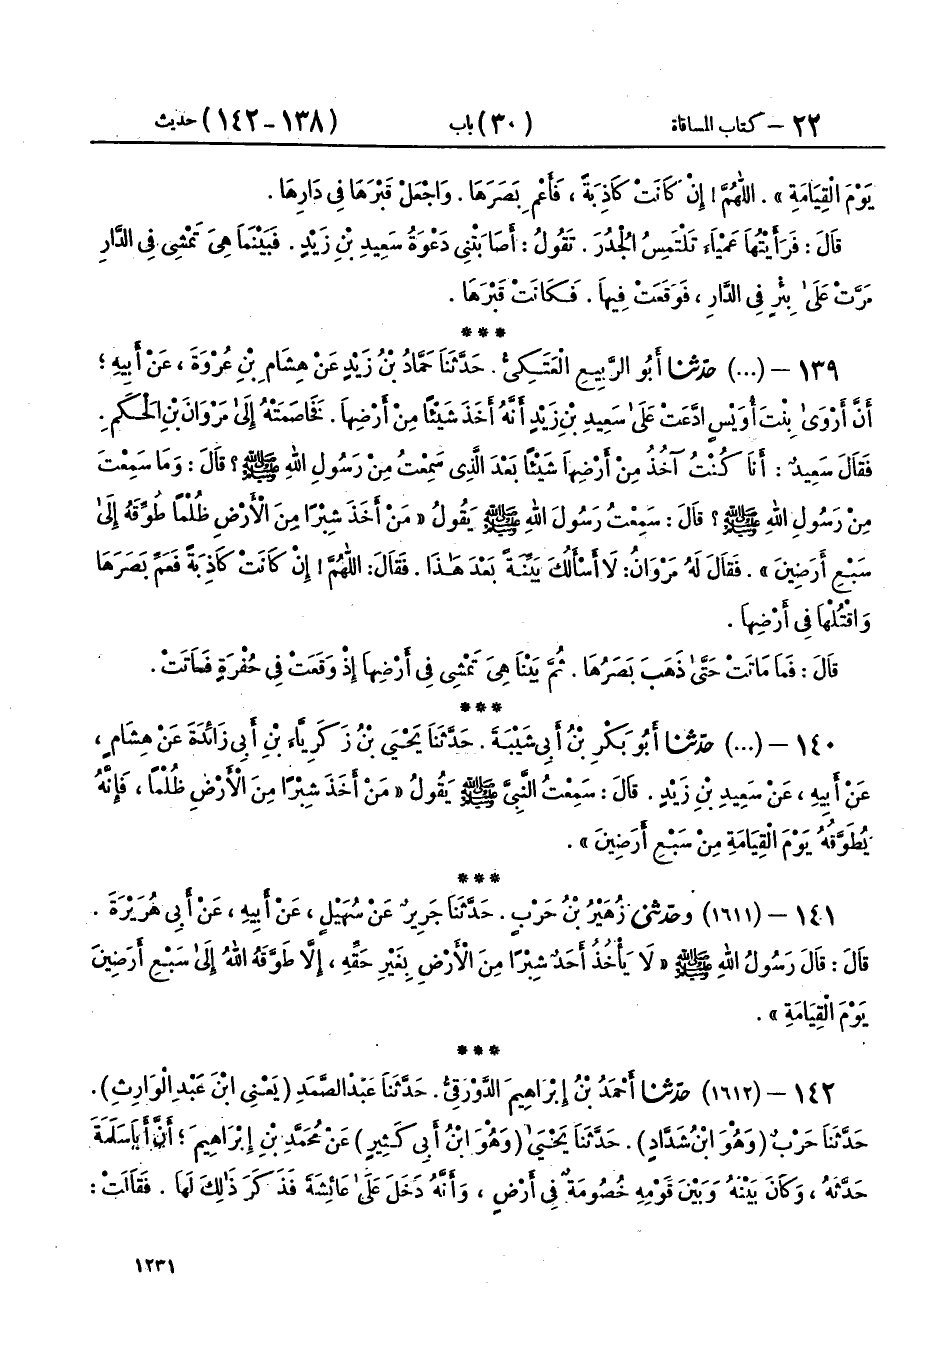 ٢٢ – كتاب المساقاة (٣٠) باب (١٣٨-١٤٢) حديث
يَوْمَ الْقِيَامَةِ » . اللّٰهُمَّ ! إِنْ كَانَتْ كَاذِبَةً ، فَأَعْمِ بَصَرَهَا . وَاجْعَلْ قَبْرَهَا فِي دَارِهَا .
قَالَ : فَرَأَيْتُهَا عَمْيَاءَ تَلْتَمِسُ الْجُدُرَ . تَقُولُ : أَصَابَتْنِي دَعْوَةُ سَعِيدِ بْنِ زَيْدٍ . فَبَيْنَمَا هِيَ تَمْشِي فِي الدَّارِ
مَرَّتْ عَلَىٰ بِئْرٍ فِي الدَّارِ ، فَوَقَعَتْ فِيهَا . فَكَانَتْ قَبْرَهَا .
***
١٣٩ – (...) حَدَّثَنَا أَبُو الرَّبِيعِ الْعَتَكِيُّ . حَدَّثَنَا حَمَّادُ بْنُ زَيْدٍ عَنْ هِشَامِ بْنِ عُرْوَةَ ، عَنْ أَبِيهِ ؛
أَنَّ أَرْوَىٰ بِنْتَ أُوَيْسٍ ادَّعَتْ عَلَىٰ سَعِيدِ بْنِ زَيْدٍ أَنَّهُ أَخَذَ شَيْئًا مِنْ أَرْضِهَا . فَخَاصَمَتْهُ إِلَىٰ مَرْوَانَ بْنِ الْحَكَمِ .
فَقَالَ سَعِيدٌ : أَنَا كُنْتُ آخُذُ مِنْ أَرْضِهَا شَيْئًا بَعْدَ الَّذِي سَمِعْتُ مِنْ رَسُولِ اللهِ ﷺ ؟ قَالَ : وَمَا سَمِعْتَ
مِنْ رَسُولِ اللهِ ﷺ ؟ قَالَ : سَمِعْتُ رَسُولَ اللهِ ﷺ يَقُولُ « مَنْ أَخَذَ شِبْرًا مِنَ الْأَرْضِ ظُلْمًا طُوِّقَهُ إِلَىٰ
سَبْعِ أَرَضِينَ » . فَقَالَ لَهُ مَرْوَانُ : لَا أَسْأَلُكَ بَيِّنَةً بَعْدَ هَـٰذَا . فَقَالَ : اللّٰهُمَّ ! إِنْ كَانَتْ كَاذِبَةً فَعَمِّ بَصَرَهَا
وَاقْتُلْهَا فِي أَرْضِهَا .
قَالَ : فَمَا مَاتَتْ حَتَّىٰ ذَهَبَ بَصَرُهَا . ثُمَّ بَيْنَا هِيَ تَمْشِي فِي أَرْضِهَا إِذْ وَقَعَتْ فِي حُفْرَةٍ فَمَاتَتْ .
***
١٤٠ – (...) حَدَّثَنَا أَبُو بَكْرِ بْنُ أَبِي شَيْبَةَ . حَدَّثَنَا يَحْيَىٰ بْنُ زَكَرِيَّاءَ بْنِ أَبِي زَائِدَةَ عَنْ هِشَامٍ ،
عَنْ أَبِيهِ ، عَنْ سَعِيدِ بْنِ زَيْدٍ . قَالَ : سَمِعْتُ النَّبِيَّ ﷺ يَقُولُ « مَنْ أَخَذَ شِبْرًا مِنَ الْأَرْضِ ظُلْمًا ، فَإِنَّهُ
يُطَوَّقُهُ يَوْمَ الْقِيَامَةِ مِنْ سَبْعِ أَرَضِينَ » .
***
١٤١ – (١٦١١) وحَدَّثَنِي زُهَيْرُ بْنُ حَرْبٍ . حَدَّثَنَا جَرِيرٌ عَنْ سُهَيْلٍ ، عَنْ أَبِيهِ ، عَنْ أَبِي هُرَيْرَةَ .
قَالَ : قَالَ رَسُولُ اللهِ ﷺ « لَا يَأْخُذُ أَحَدٌ شِبْرًا مِنَ الْأَرْضِ بِغَيْرِ حَقِّهِ ، إِلَّا طَوَّقَهُ اللهُ إِلَىٰ سَبْعِ أَرَضِينَ
يَوْمَ الْقِيَامَةِ » .
***
١٤٢ – (١٦١٢) حَدَّثَنَا أَحْمَدُ بْنُ إِبْرَاهِيمَ الدَّوْرَقِيُّ . حَدَّثَنَا عَبْدُ الصَّمَدِ (يَعْنِي ابْنَ عَبْدِ الْوَارِثِ) .
حَدَّثَنَا حَرْبٌ (وَهُوَ ابْنُ شَدَّادٍ) . حَدَّثَنَا يَحْيَىٰ (وَهُوَ ابْنُ أَبِي كَثِيرٍ) عَنْ مُحَمَّدِ بْنِ إِبْرَاهِيمَ ؛ أَنَّ أَبَا سَلَمَةَ
حَدَّثَهُ ، وَكَانَ بَيْنَهُ وَبَيْنَ قَوْمِهِ خُصُومَةٌ فِي أَرْضٍ ، وَأَنَّهُ دَخَلَ عَلَىٰ عَائِشَةَ فَذَكَرَ ذَٰلِكَ لَهَا . فَقَالَتْ :
١٢٣١